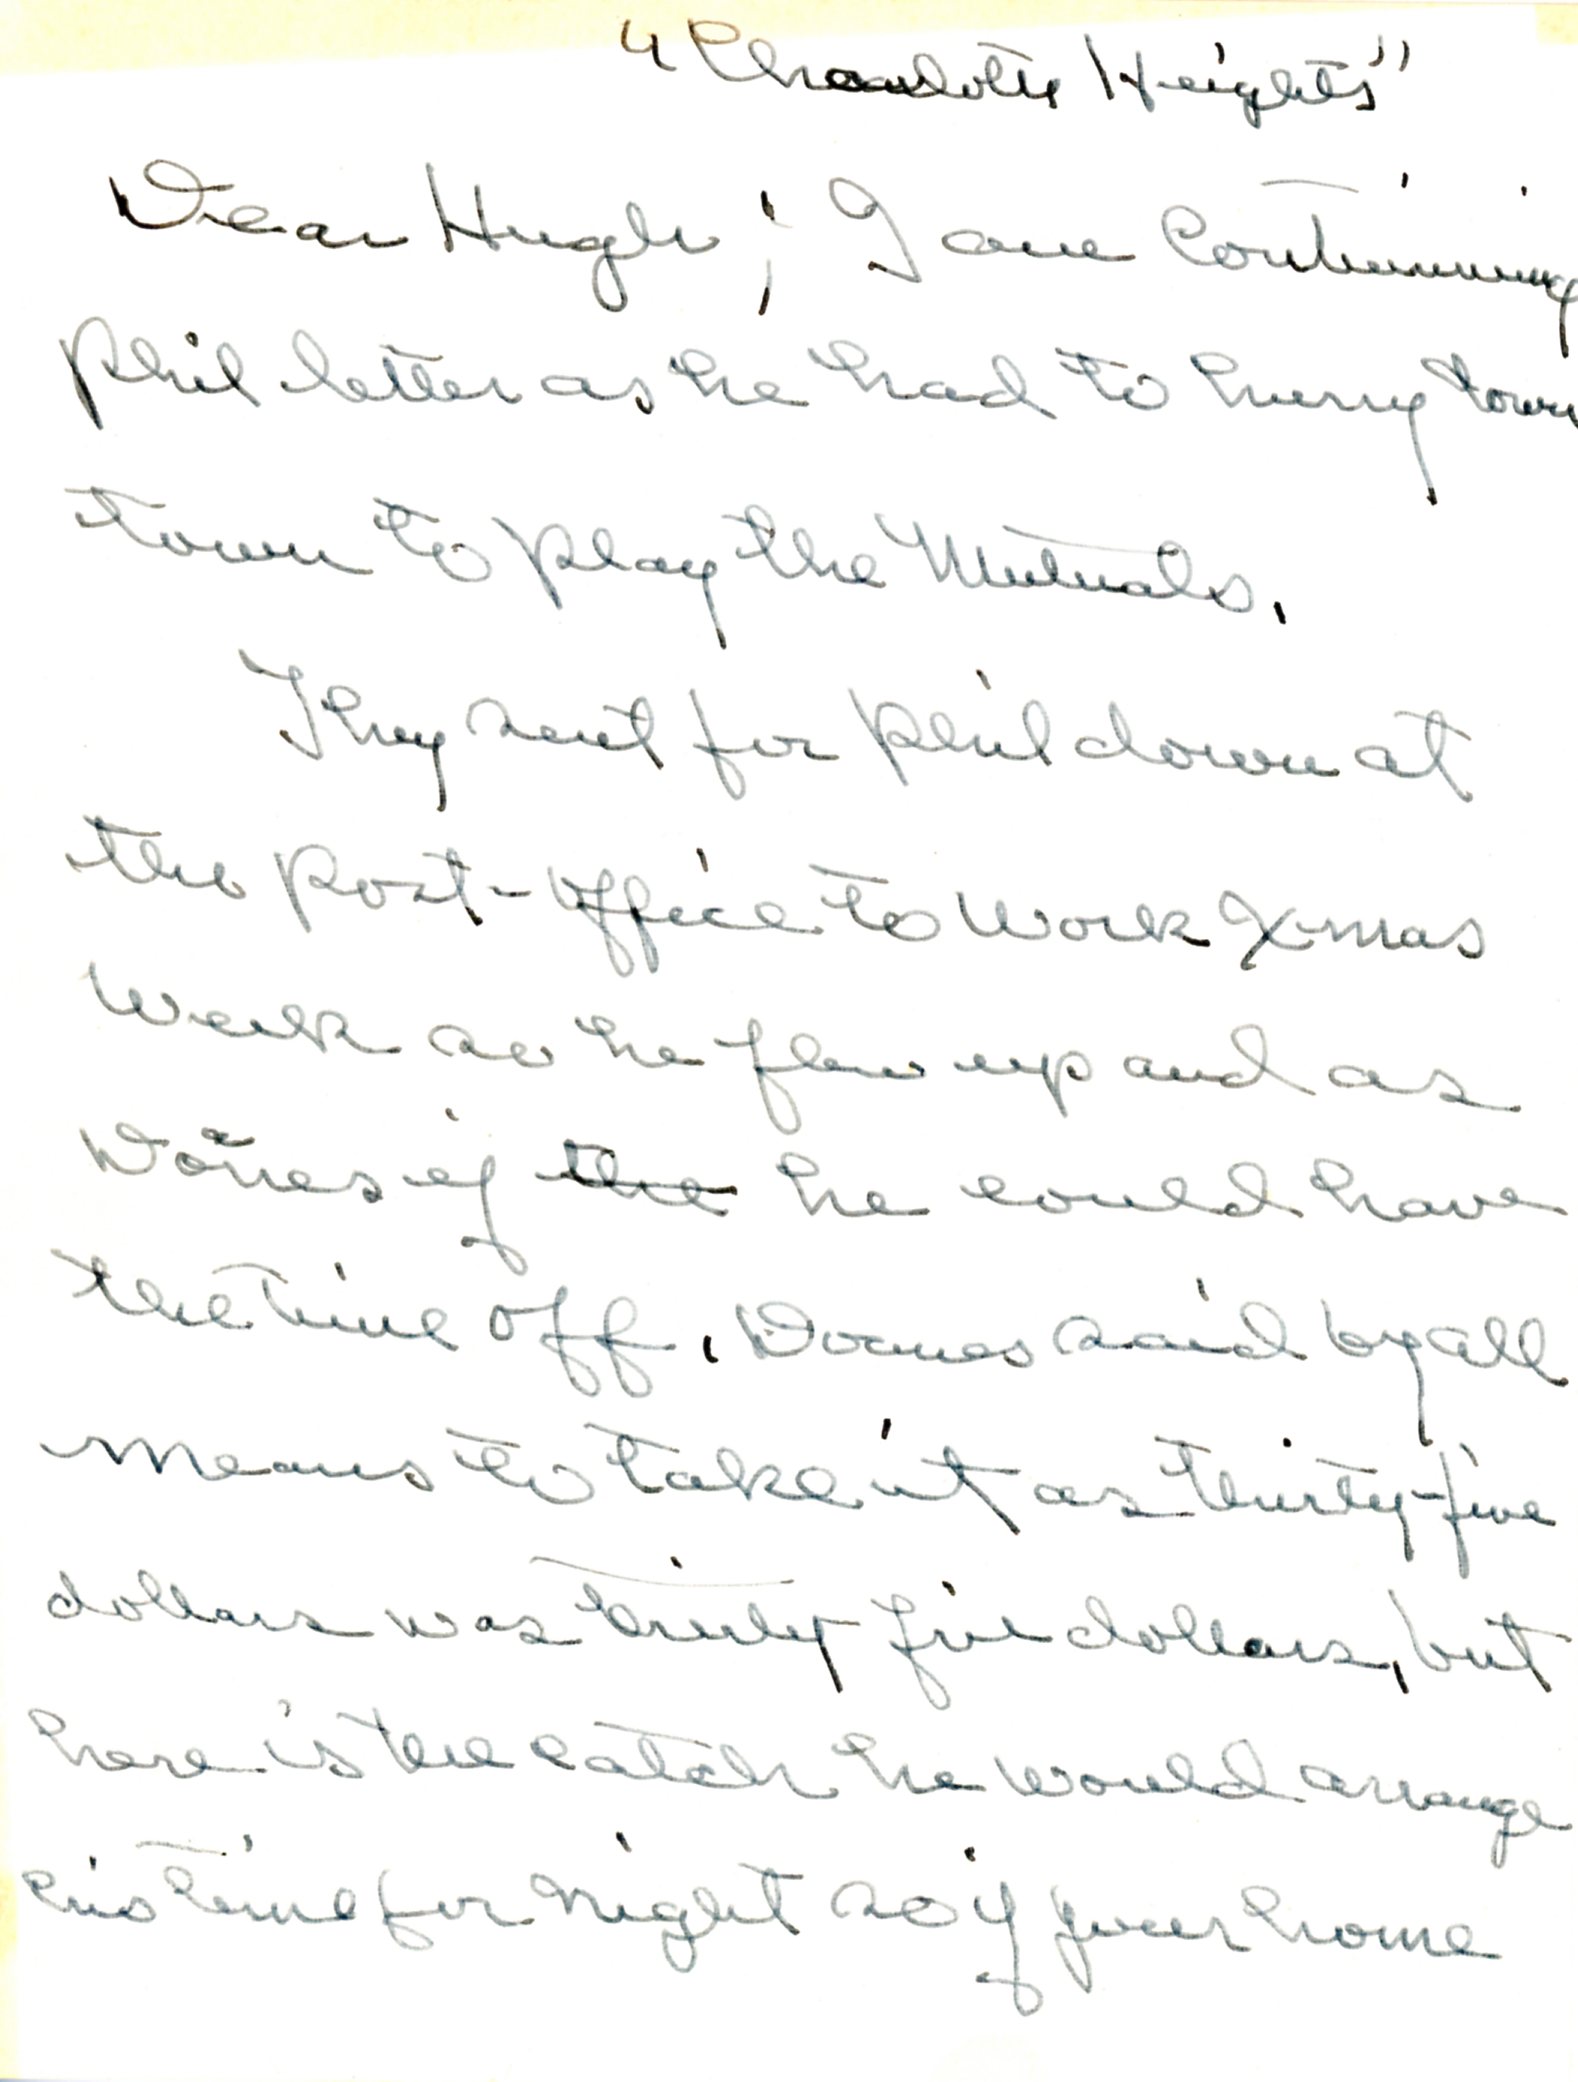 "Charlotte Heights"
Dear Hugh; I am Continuing
Phil letter as he had to hurry town
town to play the Mutuals.
They sent for Phil down at
the Post-office to work X-mas
week so he flew up and as
if the he could have
the time off. said by all
means to take it as thirty-five
dollars was thirty five dollars, but
here is the catch he would arrange
his time for night so if your home